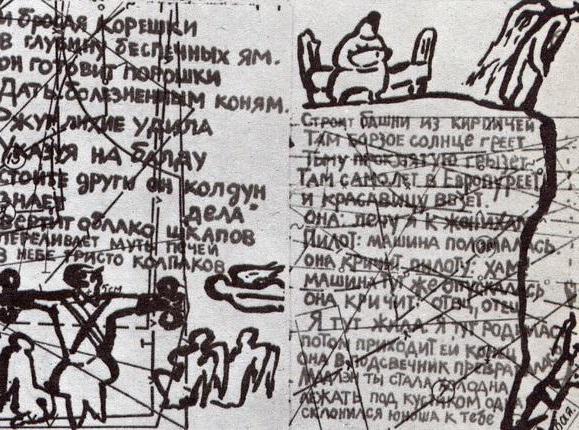 и бросая корешки
в глубину беспечных ям.
он готовит порошки
Дать болезненным коням.
Ржут лихие удила
Указуя на балду
стойте други он колдун
знает дела
вертит облако шкапов
переливает муть печей
в небе тристо колпаков
5см
Строит башни из кирпичей
Там борзое солнце греет
тьму проклятую грызет
там самолет в Европу реет
и красавицу везет.
она: лечу я к женихам
Пилот: машина поломалась
она кричит пилоту: хам
машина тут же опускалась
она кричит: отец, отец
Я тут жила. я тут родилась
потом приходит ей конец
она в подсвечник превратилась
мадлэн ты стала холодна
лежать под кустиком одна
склонился юноша к тебе